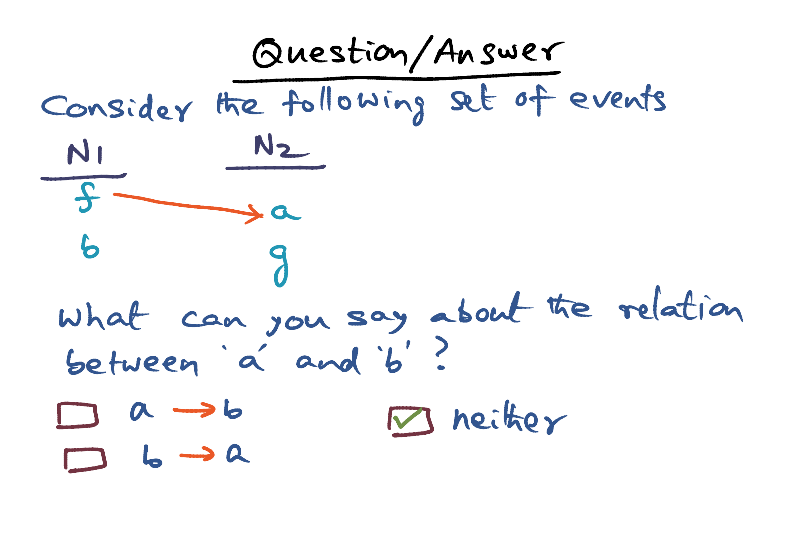 Question/Answer
Consider the following set of events
N1 N2
f → a
b g
What can you say about the relation
between 'a' and 'b' ?
a → b
neither
b → a